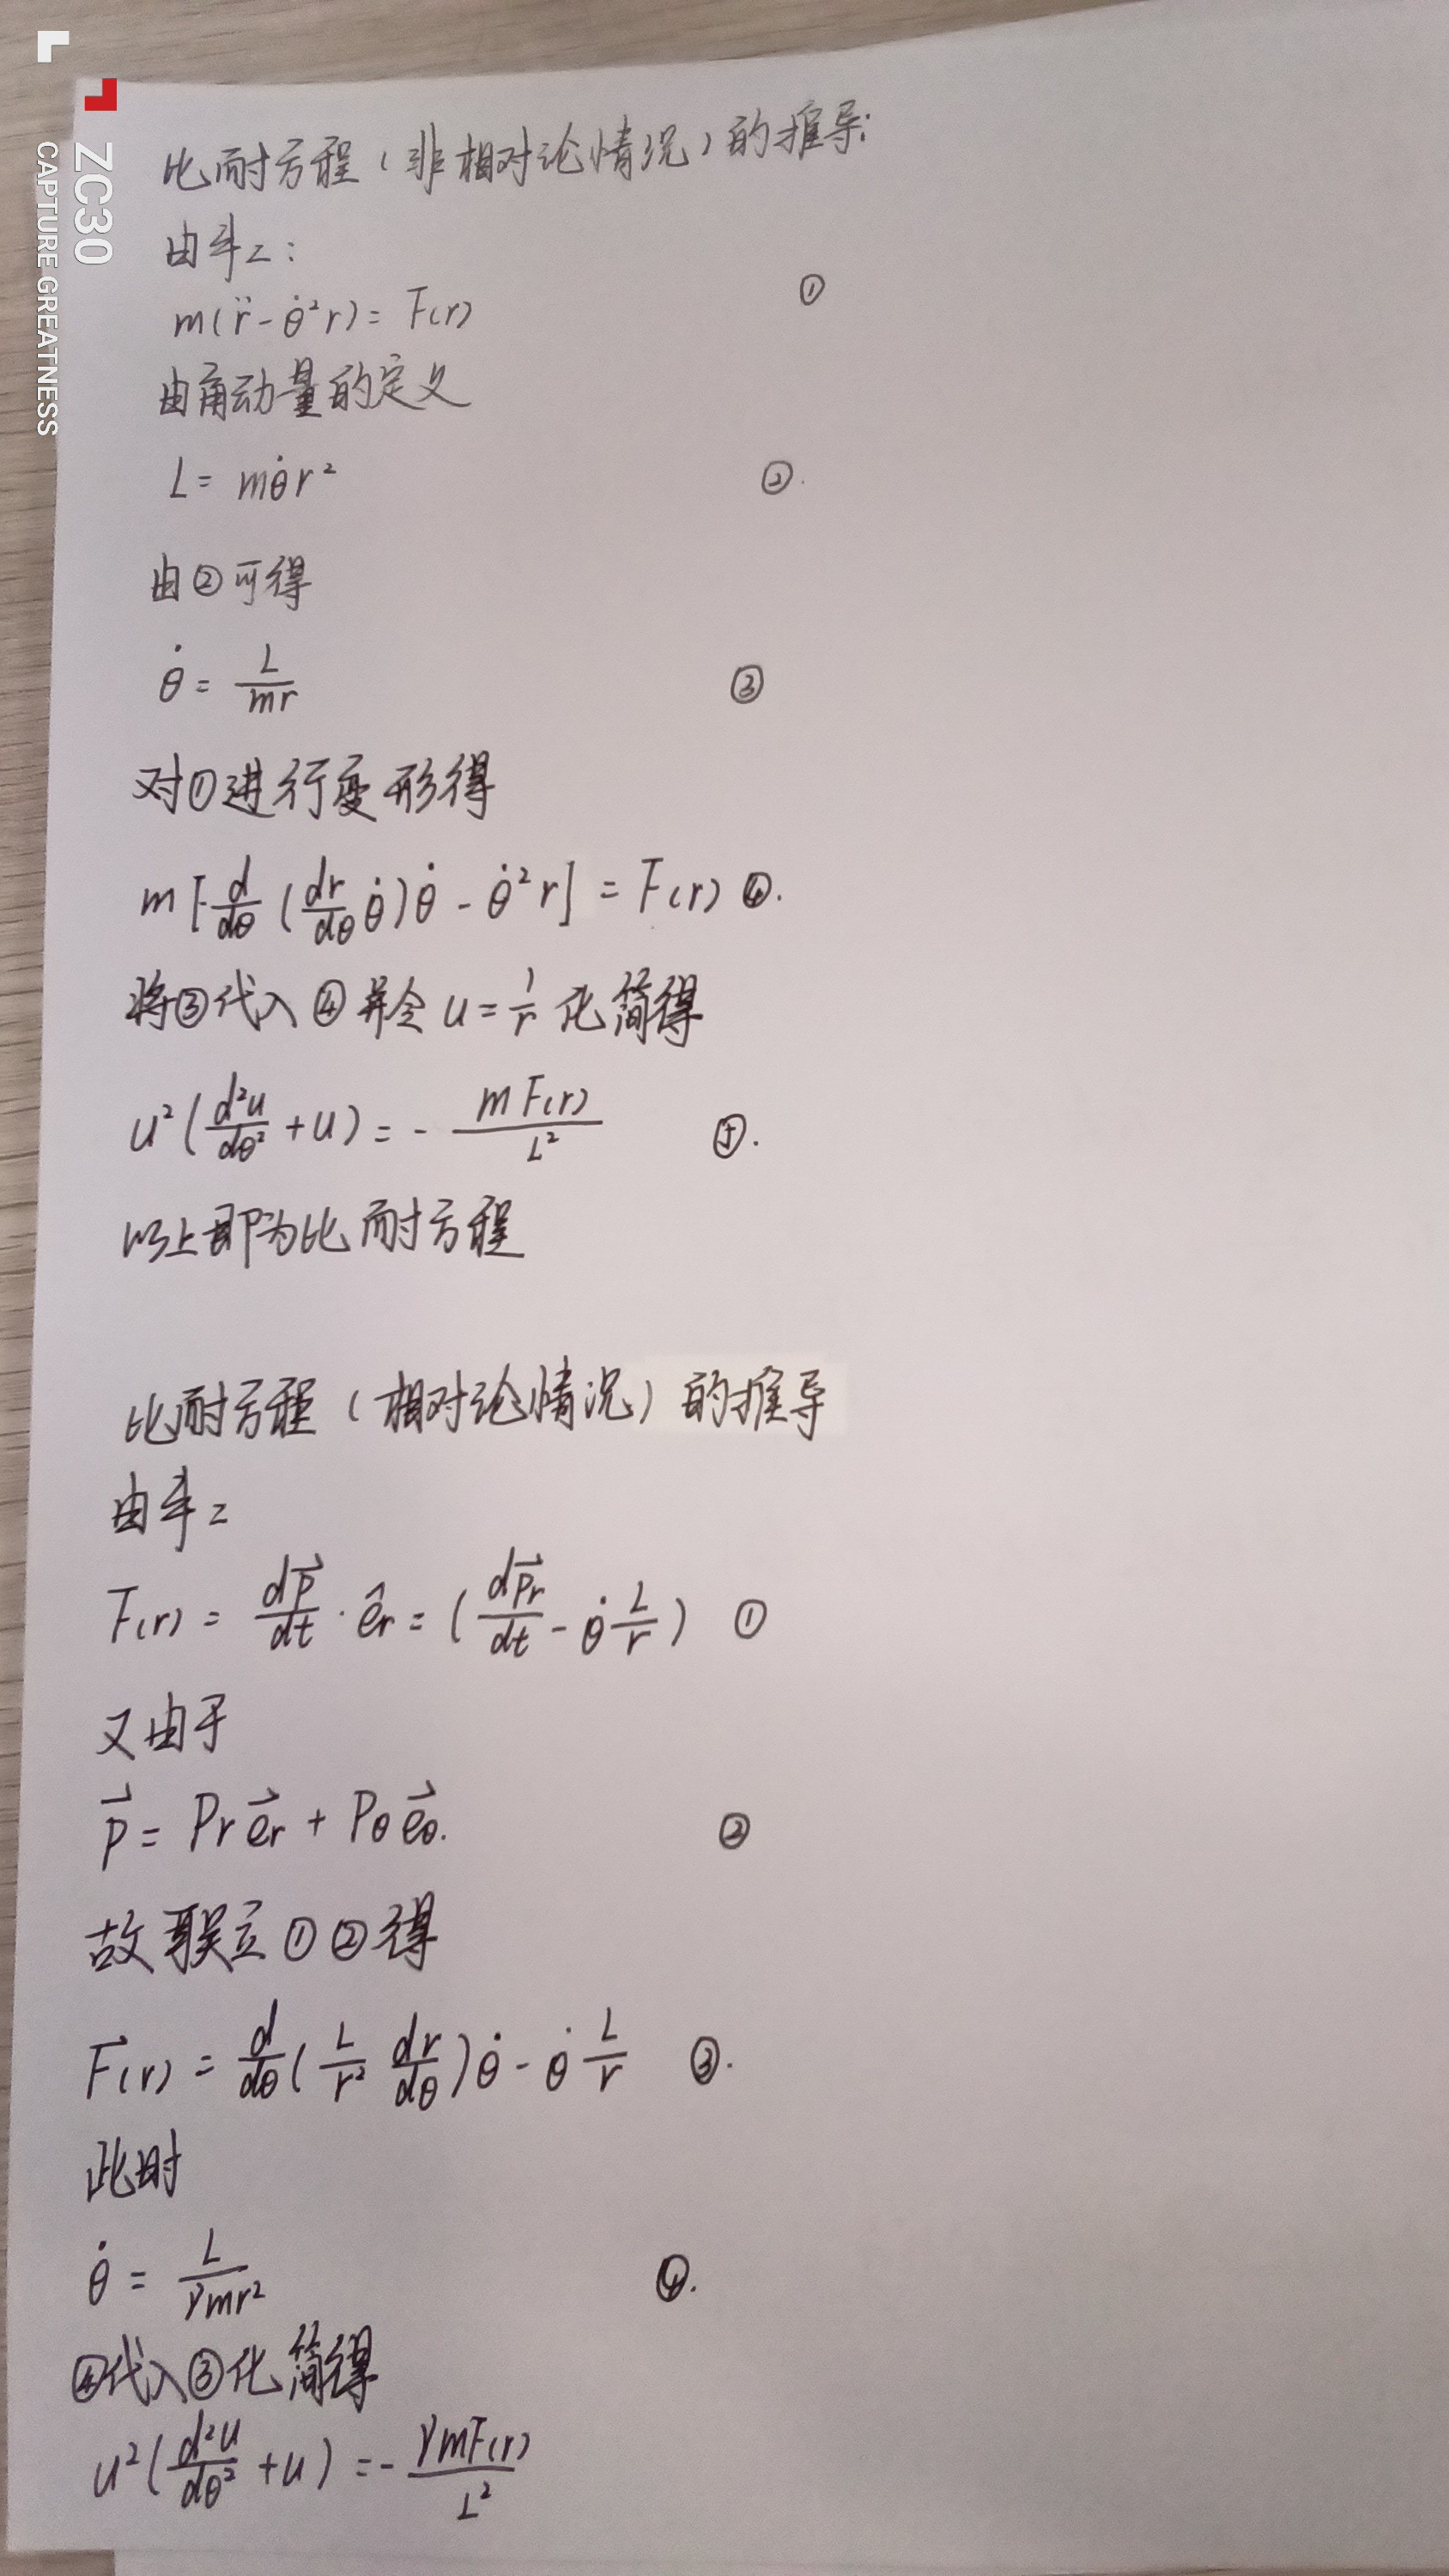 ZC30
CAPTURE GREATNESS
比耐方程（非相对论情况）的推导:
由牛二:
m(r̈-θ̇²r)= F(r) ①
由角动量的定义
L= mθ̇r² ②.
由②可得
θ̇= L/mr ③
对①进行变形得
m[d/dθ(dr/dθ θ̇)θ̇-θ̇²r] = F(r) ④.
将③代入④并令u=1/r化简得
u²(d²u/dθ²+u)=- mF(r)/L² ⑤.
以上即为比耐方程
比耐方程（相对论情况）的推导
由牛二
F(r) = dp⃗/dt·êr=(dp⃗r/dt-θ̇L/r) ①
又由于
p⃗= Pr e⃗r+Pθ e⃗θ. ②
故联立①②得
F⃗(r) = d/dθ(L/r² dr/dθ)θ̇-θ̇L/r ③.
此时
θ̇= L/γmr² ④.
④代入③化简得
u²(d²u/dθ²+u)=-γmF(r)/L²